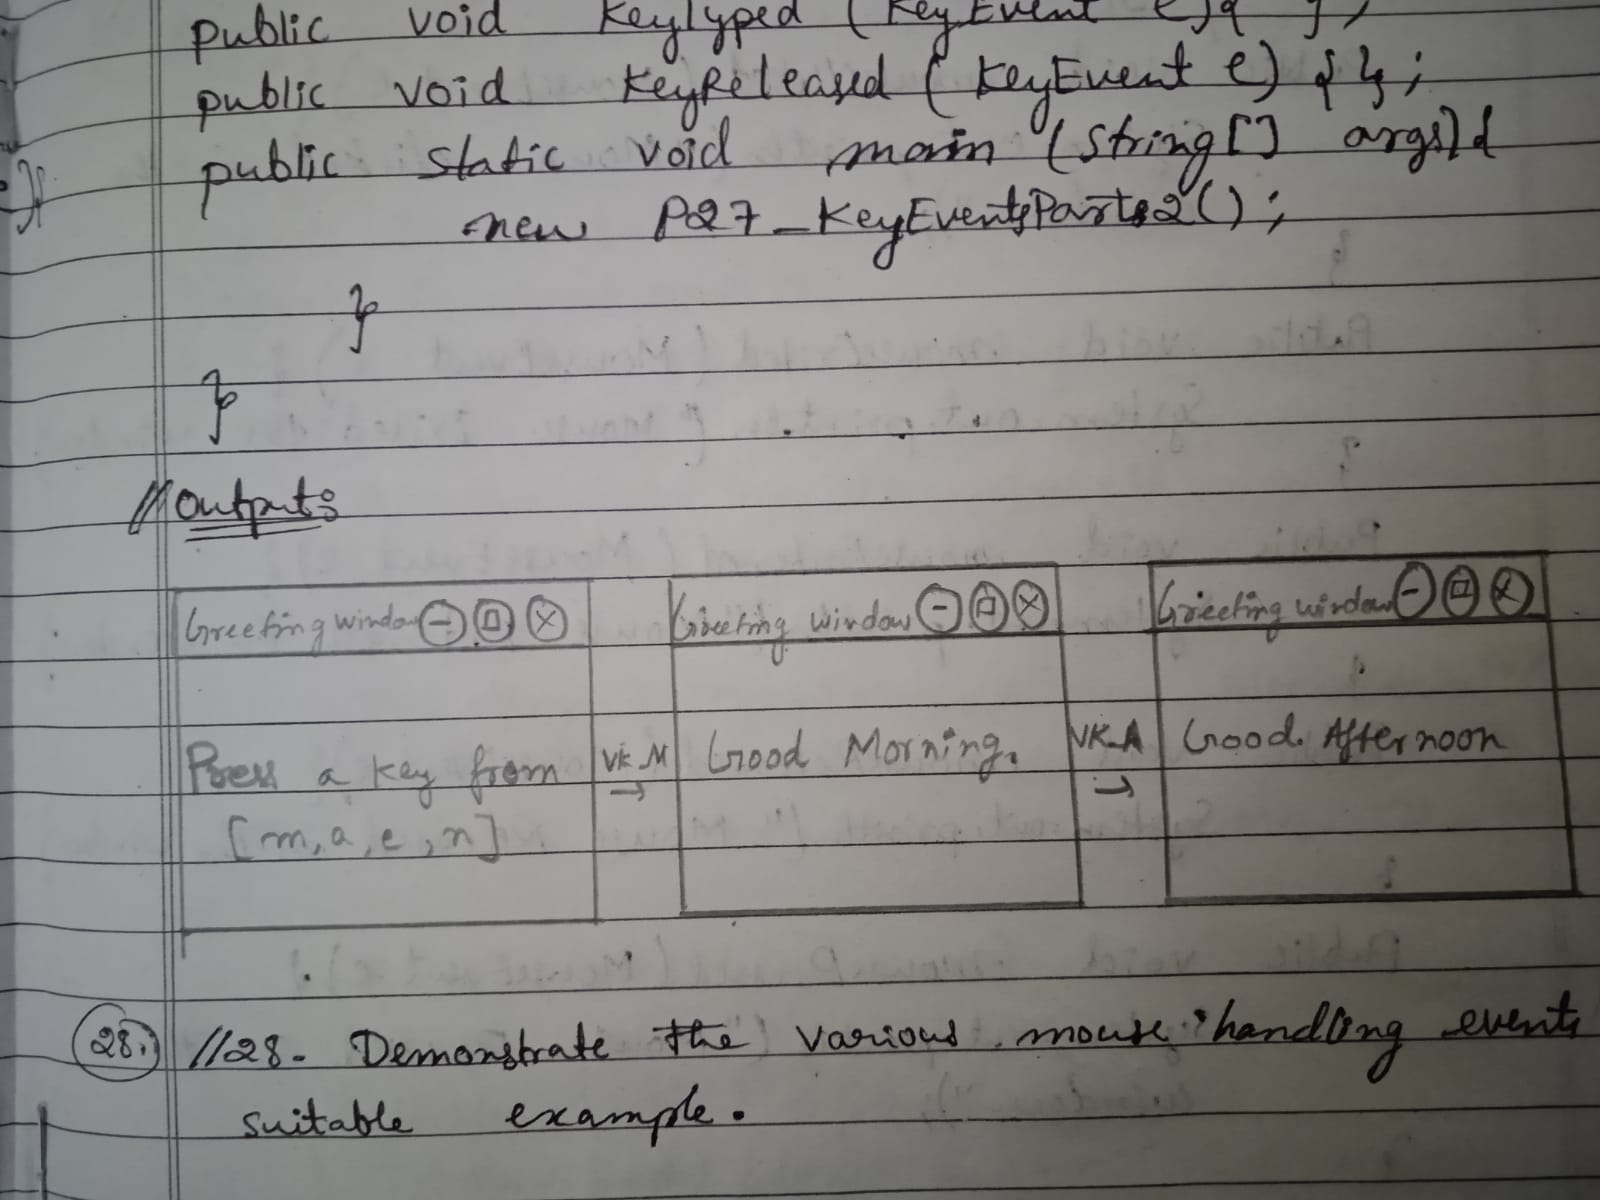 public void KeyTyped (KeyEvent e){ };
public void KeyReleased (KeyEvent e) { };
public static void main (String[] args){
new P27_KeyEventsParts2();
}
}
// Outputs
Greeting window - □ x
Press a key from
[m,a,e,n]
VK_M
→
Greeting window - □ x
Good Morning.
VK_A
→
Greeting window - □ x
Good Afternoon
28.) //28. Demonstrate the various mouse handling events
suitable example.